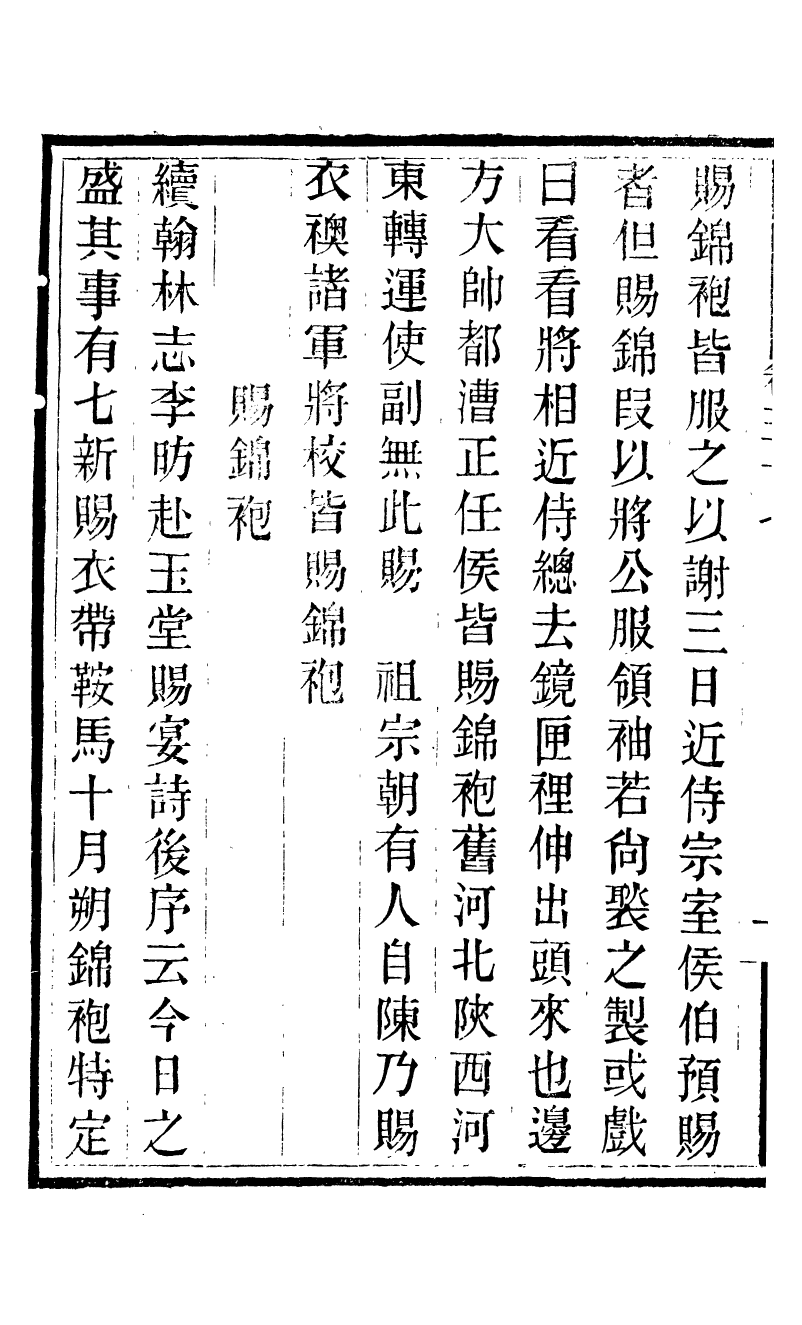 賜錦袍皆服之以謝三日近侍宗室侯伯預賜
者但賜錦段以將公服領袖若尙褧之製或戲
曰看看將相近侍總去鏡匣裡伸出頭來也邊
方大帥都漕正任侯皆賜錦袍舊河北陝西河
東轉運使副無此賜　祖宗朝有人自陳乃賜
衣襖諸軍將校皆賜錦袍
賜錦袍
續翰林志李昉赴玉堂賜宴詩後序云今日之
盛其事有七新賜衣帶鞍馬十月朔錦袍特定